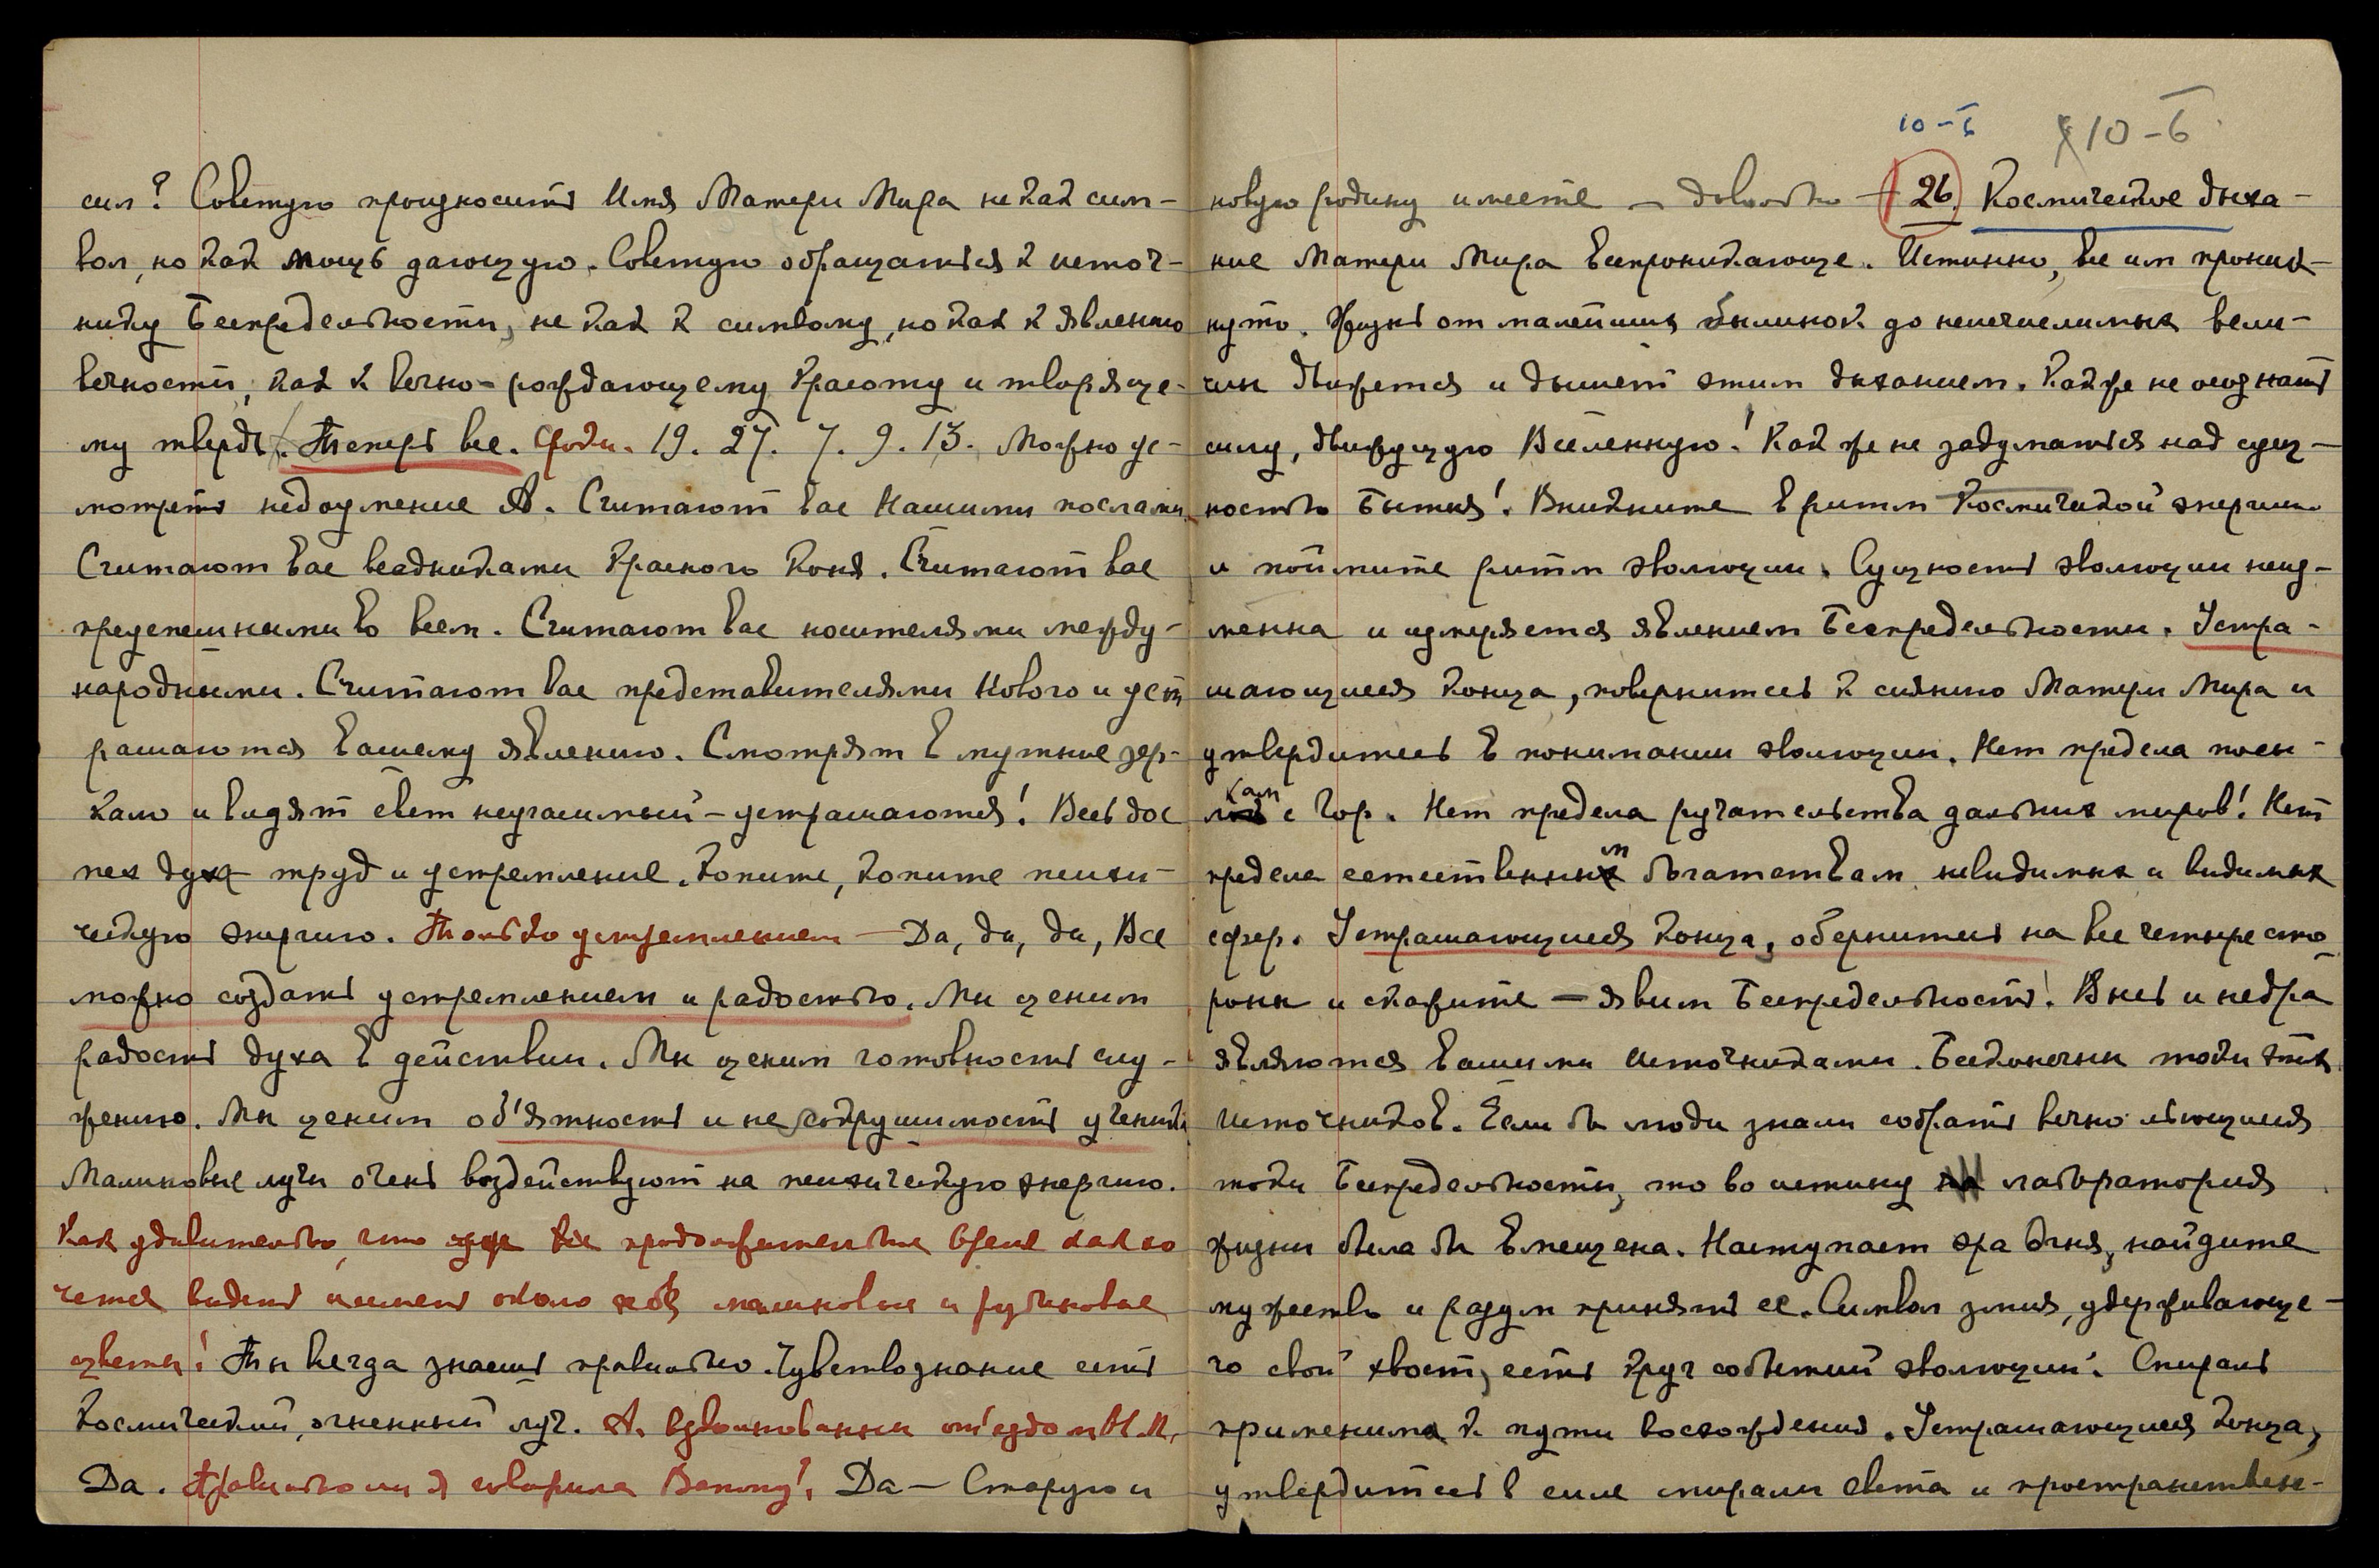 сил? Советую произносить Имя Матери Мира не как сим-
вол, но как мощь дающую. Советую обращаться к источ-
нику Беспредельности, не как к символу, но как к явлению
вечности, как к вечно-рождающему красоту и творяще-
му твердь. Теперь все. Годы. 19. 27. 7. 9. 13. Можно ус-
мотреть недоумение А. Считают вас Нашими послами.
Считают вас всадниками Красного Коня. Считают вас
преуспешными во всем. Считают вас носителями между-
народными. Считают вас представителями Нового и уст
рашаются вашему явлению. Смотрят в мутные зер-
кала и видят свет неугасимый – устрашаются! Весь дос
пех духа труд и устремление. Копите, копите психи-
ческую энергию. Только устремлением – Да, да, да, Все
можно создать устремлением и радостью. Мы ценим
радость духа в действии. Мы ценим готовность слу-
жению. Мы ценим об'ятность и не сокрушимость учений.
Малиновые лучи очень воздействуют на психическую энергию.
Как удивительно, что все продолжительное время как хо
чется видеть и иметь около себя малиновые и рубиновые
цветы! Ты всегда знаешь правильно. Чувствознание есть
Космический, огненный луч. А. взволнованны от'ездом М.М.
Да. Правильно ли я говорила Вапогу! Да – Старую и
10-Б
10-Б
новую родину имеете – довольно – 26. Космическое дыха-
ние Матери Мира всепроникающе. Истинно, все им проник-
нуто. Жизнь от малейших былинок до неисчислимых вели-
чин движется и дышет этим дыханием. Как же не осознать
силу, движущую Вселенную! Как же не задуматься над сущ-
ностью Бытия! Вникните в ритм Космической энергии
и поймите ритм эволюции. Сущность эволюции неиз-
менна и измеряется явлением Беспредельности. Устра-
шающиеся конца, повернитесь к сиянию Матери Мира и
утвердитесь в понимании эволюции. Нет предела посы-
лкам с Гор. Нет предела ручательства дальних миров! Нет
предела естественным богатствам невидимых и видимых
сфер. Устрашающиеся конца, обернитесь на все четыре сто
роны и скажите – явим Беспредельность! Высь и недра
являются вашими Источниками. Бесконечны токи этих
Источников. Если бы люди знали собрать вечно льющиеся
токи Беспредельности, то во истину лаборатория
жизни была бы вмещена. Наступает эра Огня, найдите
мужество и разум принять ее. Символ змия, удерживающе-
го свой хвост, есть круг событий эволюции. Спираль
применима к пути восхождения. Устрашающиеся конца,
утвердитесь в силе спирали света и пространствен-